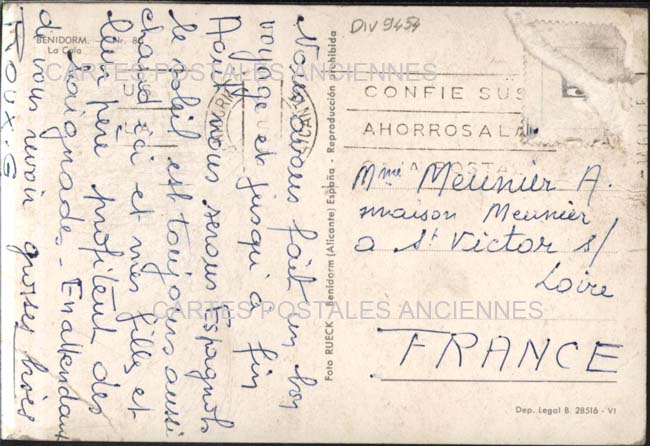 BENIDORM. - Nr. 80
La Cala
DIV 9454
Nous avons fait un bon
voyage et jusqu'à fin
Août nous serons Espagnols
le soleil est toujours aussi
chaud ici et mes filles et
leur père profitent des
baignades - En attendant
de vous revoir grosses bises
ROUX. G
Foto RUECK - Benidorm (Alicante) España - Reproducción prohibida
CONFIE SUS
AHORROS A LA
POSTAL
Mme Meunier A.
maison Meunier
a St Victor s/
Loire
FRANCE
Dep. Legal B. 28516 - VI
CARTES POSTALES ANCIENNES
CARTES POSTALES ANCIENNES